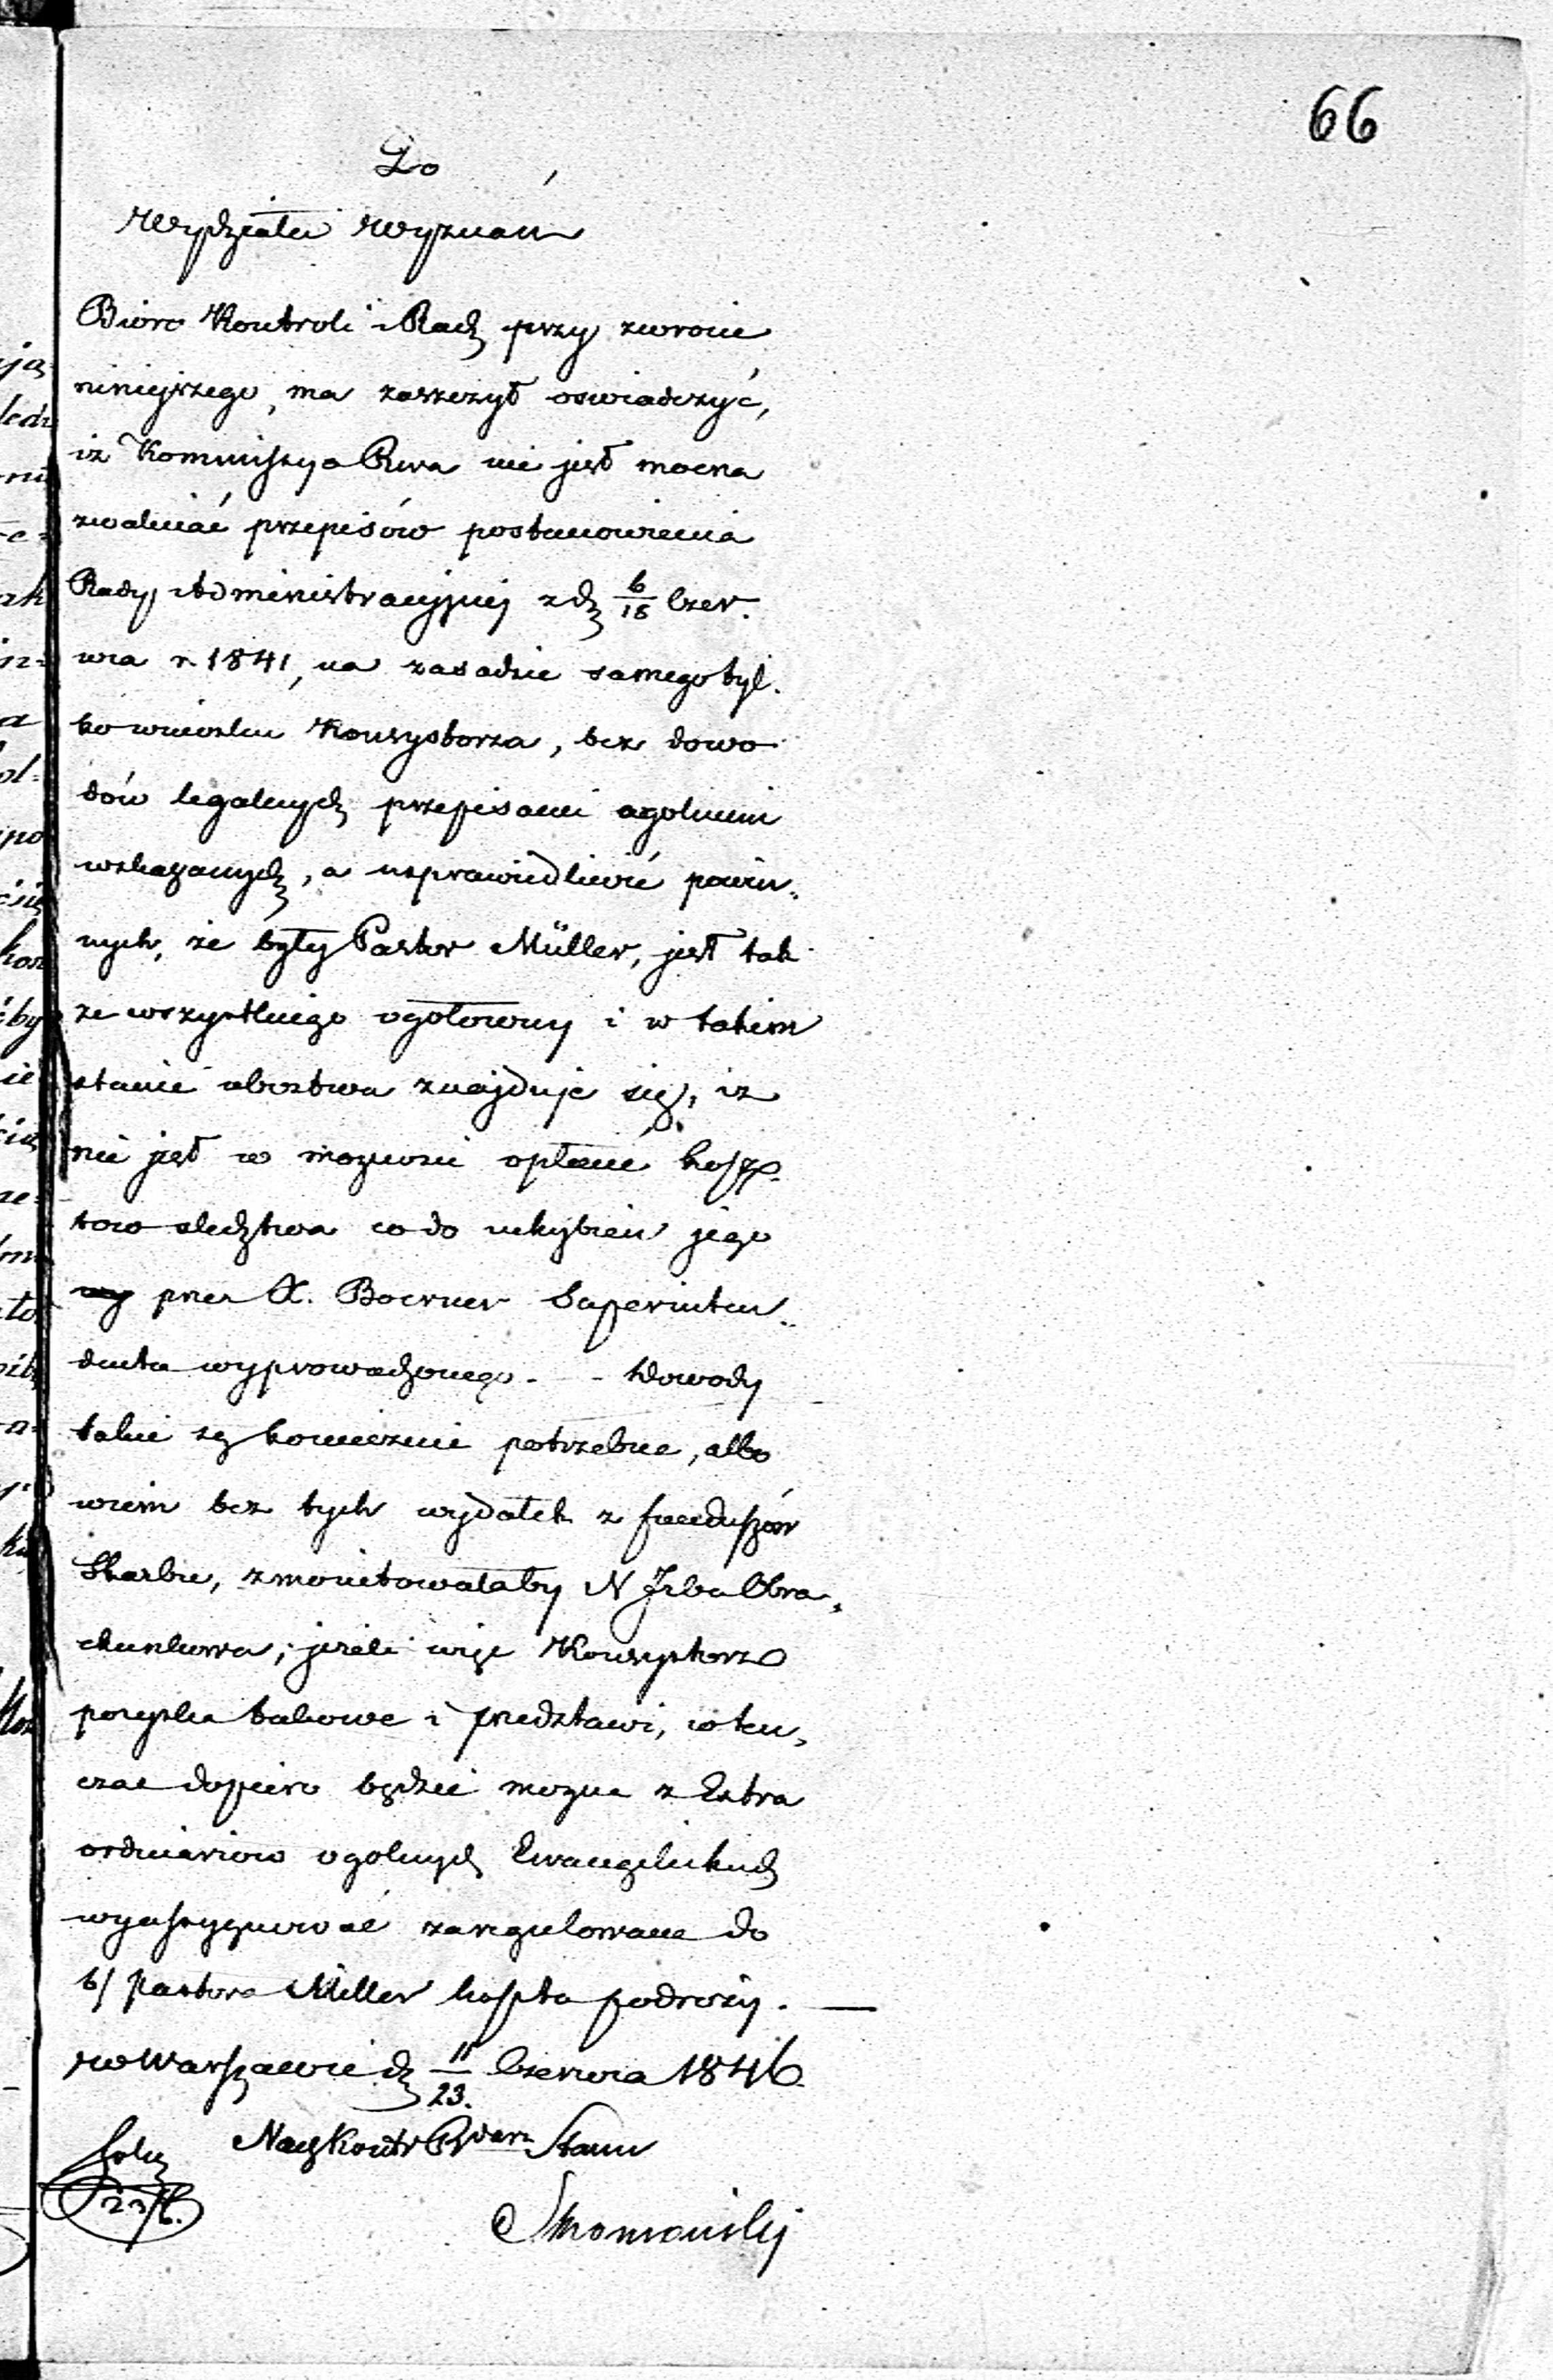 66
Do
Wydziału Wyznań
Bióro Kontroli i Rach przy zwrocie
niniejszego, ma zaszczyt oswiadczyć,
iz Kommissya Rwa nie jest mocna
zwalniać przepisów postanowienia
Rady Administracyjnej z d 6/18 Czer.
wca r. 1841, na zasadzie samego tyl.
ko wniosku Konsystorza, bez dowo
dów legalnych przepisami ogolnemi
wskazanych, a usprawiedliwić powin.
nych, że były Pastor Müller, jest tak
ze wszystkiego ogołocony i w takim
stanie ubostwa znajduje się, iz
nie jest w mozności opłacić kosz.
tow sledztwa co do uchybień jego
przez X. Boerner Superinten.
denta wyprowadzonego. - Dowody
takie są koniecznie potrzebne, albo
wiem bez tych wydatek z funduszów
Skarbu, zmonitowałaby N Izba Obra.
chunkowa; jeżeli więc Konsystorz
pozyska takowe i przedstawi, wten.
czas dopiero będzie mozna z Extra
ordinariow ogolnych Ewangelickich
wyassygnować zaregulowane do
b/ Pastora Müller koszta podrózy. —
w Warszawie d 11/23. Czerwca 1846
Nacz Kontr
23/6.